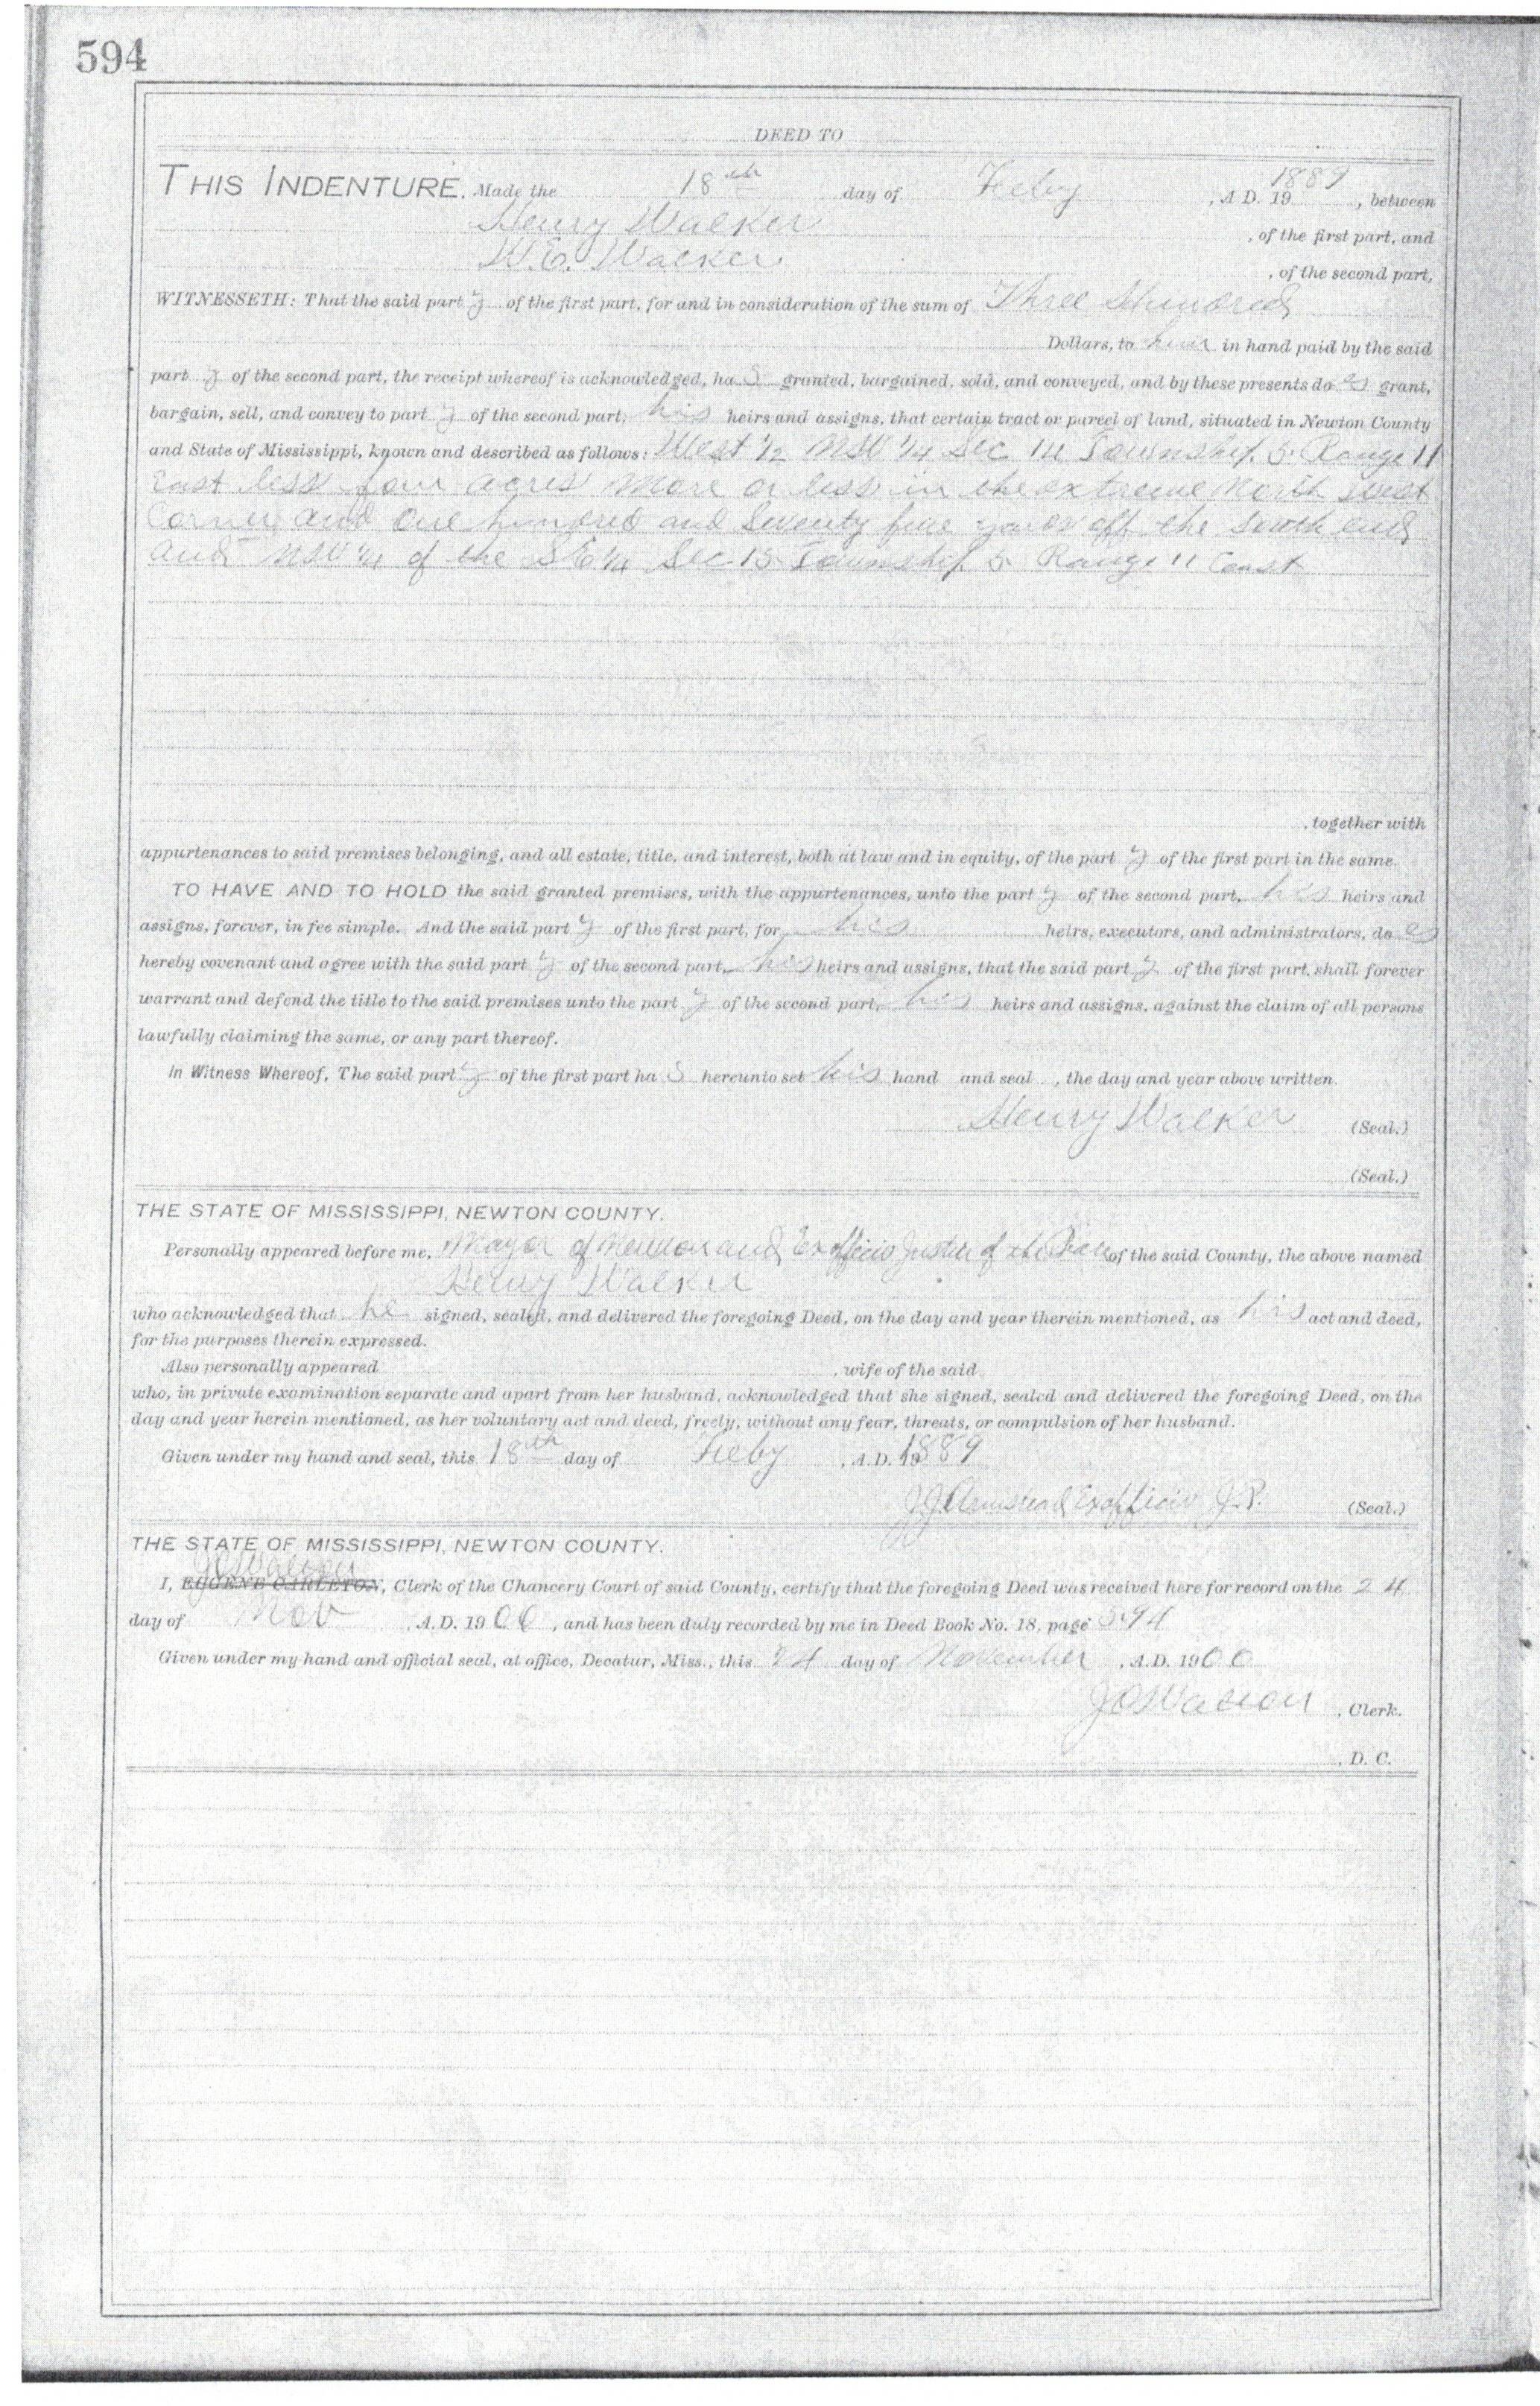 594
DEED TO
THIS INDENTURE, Made the 18th day of Feby 1889, A D. 19 , between
Henry Walker , of the first part, and
W.E. Walker , of the second part,
WITNESSETH: That the said party of the first part, for and in consideration of the sum of Three Hundred
Dollars, to him in hand paid by the said
party of the second part, the receipt whereof is acknowledged, has granted, bargained, sold, and conveyed, and by these presents does grant,
bargain, sell, and convey to party of the second part, his heirs and assigns, that certain tract or parcel of land, situated in Newton County
and State of Mississippi, known and described as follows: West 1/2 NW 1/4 Sec 14 Township 5 Range 11
East less four acres more or less in the extreme North West
Corner and One hundred and Seventy five yards off the South end
and NW 1/4 of the SE 1/4 Sec 15 Township 5 Range 11 East
, together with
appurtenances to said premises belonging, and all estate, title, and interest, both at law and in equity, of the party of the first part in the same.
TO HAVE AND TO HOLD the said granted premises, with the appurtenances, unto the party of the second part, his heirs and
assigns, forever, in fee simple. And the said party of the first part, for his heirs, executors, and administrators, does
hereby covenant and agree with the said party of the second part, his heirs and assigns, that the said party of the first part, shall forever
warrant and defend the title to the said premises unto the party of the second part, his heirs and assigns, against the claim of all persons
lawfully claiming the same, or any part thereof.
In Witness Whereof, The said party of the first part has hereunto set his hand and seal , the day and year above written.
Henry Walker (Seal.)
(Seal.)
THE STATE OF MISSISSIPPI, NEWTON COUNTY.
Personally appeared before me, Mayor of Newton and Exofficio Justice of the Peace of the said County, the above named
Henry Walker
who acknowledged that he signed, sealed, and delivered the foregoing Deed, on the day and year therein mentioned, as his act and deed,
for the purposes therein expressed.
Also personally appeared , wife of the said
who, in private examination separate and apart from her husband, acknowledged that she signed, sealed and delivered the foregoing Deed, on the
day and year herein mentioned, as her voluntary act and deed, freely, without any fear, threats, or compulsion of her husband.
Given under my hand and seal, this 18th day of Feby , A.D. 1889
J J Exofficio J.P. (Seal.)
THE STATE OF MISSISSIPPI, NEWTON COUNTY.
I, EUGENE CARLETON, Clerk of the Chancery Court of said County, certify that the foregoing Deed was received here for record on the 24
day of Nov , A.D. 1906 , and has been duly recorded by me in Deed Book No. 18, page 594
Given under my hand and official seal, at office, Decatur, Miss., this 24 day of November , A.D. 1906
, Clerk.
, D. C.